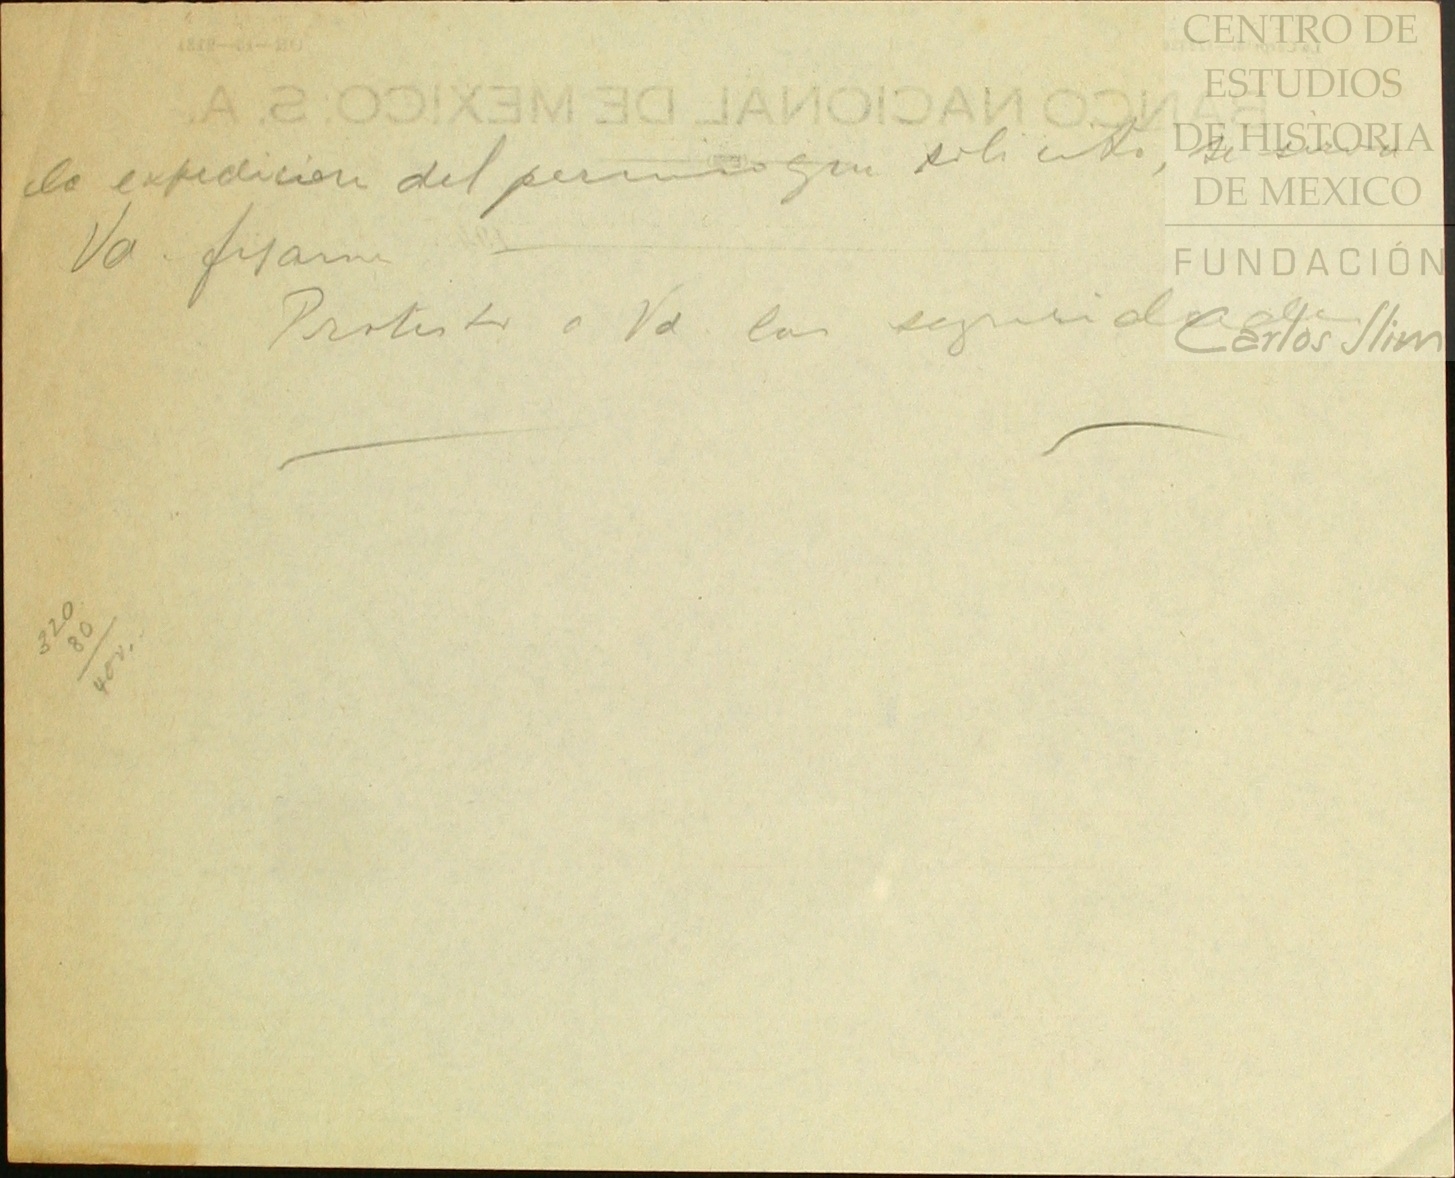 la expedición del permiso que solicito, se sirva
Vd. fijarme
Protesto a Vd. las seguridades
320
80
400.
BANCO NACIONAL DE MEXICO. S. A.
CENTRO DE
ESTUDIOS
DE HISTORIA
DE MEXICO
FUNDACIÓN
Carlos Slim